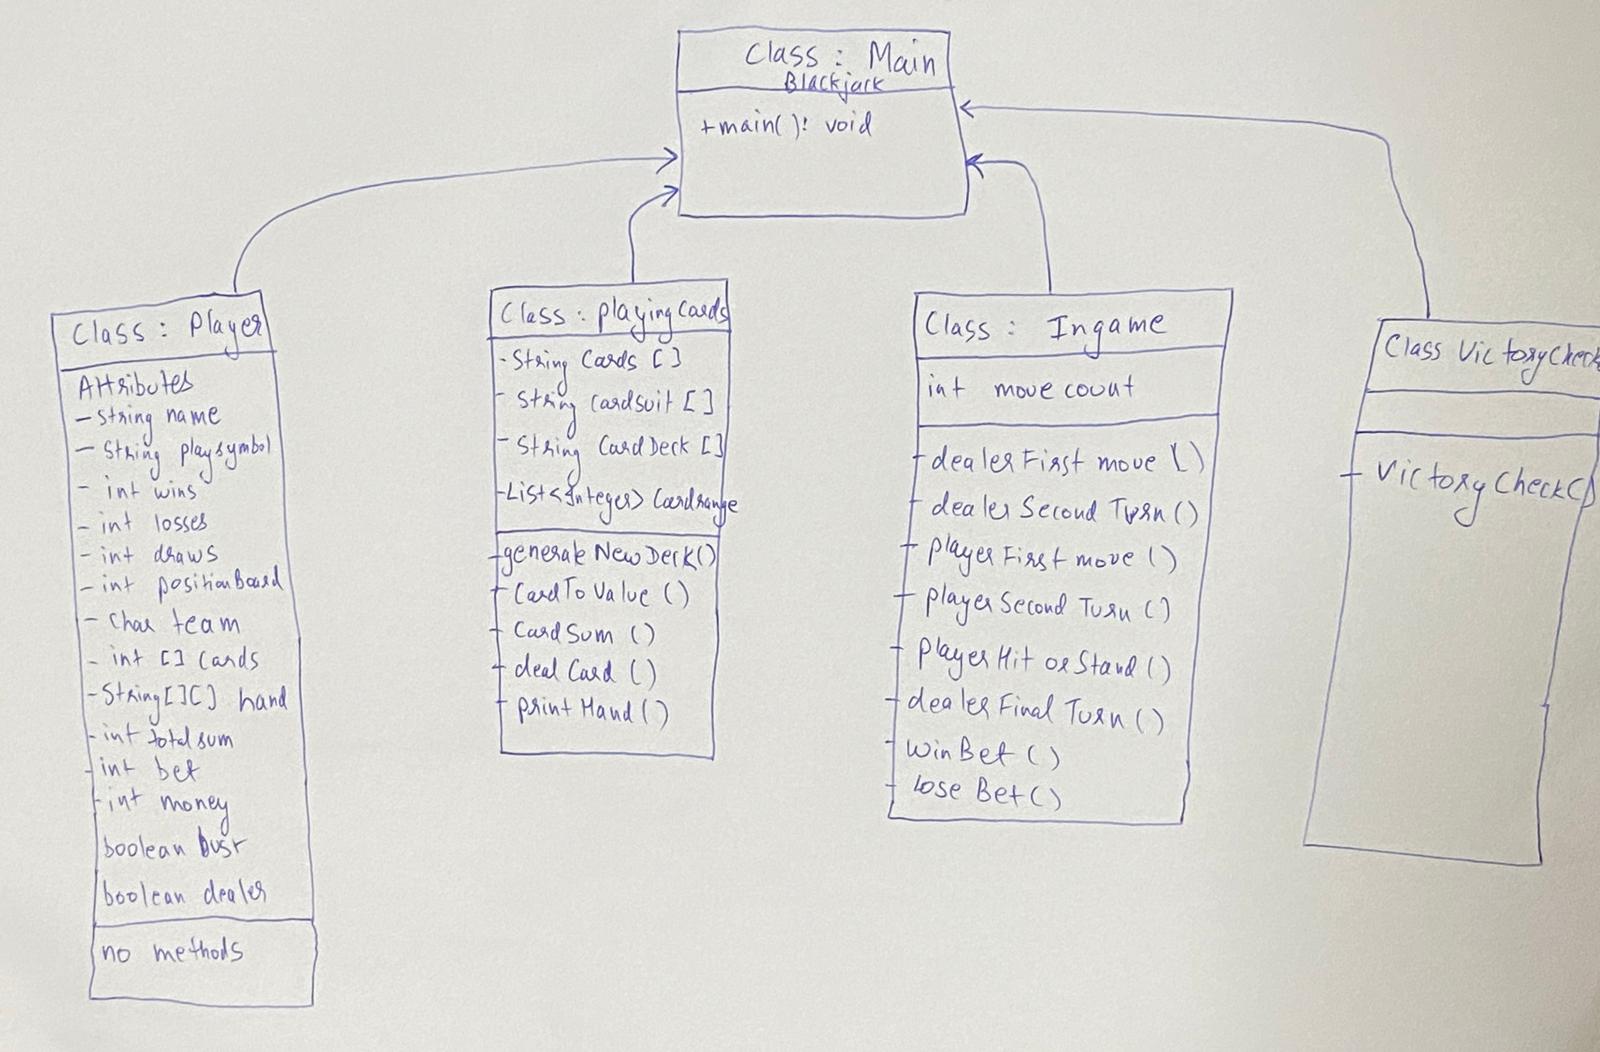 Class : Main
Blackjack
+main(): void
Class : Player
Attributes
- String name
- String playsymbol
- int wins
- int losses
- int draws
- int positionBoard
- Char team
- int [] Cards
- String[][] hand
- int totalsum
- int bet
- int money
boolean bust
boolean dealer
no methods
Class : playingCards
- String Cards []
- String Cardsuit []
- String CardDeck []
- List<Integer> Cardrange
+generateNewDeck()
+ CardToValue ()
+ CardSum ()
+ dealCard ()
+ printHand()
Class : Ingame
int move count
+ dealerFirst move ()
+ dealer Second Turn ()
+ playerFirst move ()
+ playerSecond Turn ()
+ playerHit orStand ()
+ dealerFinal Turn ()
+ WinBet ()
+ lose Bet()
Class VictoryCheck
+ VictoryCheck()